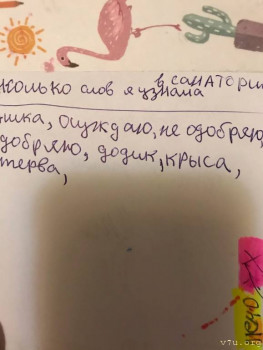 сколько слов я узнала в САНАТОРИ
шка, осуждаю, не одобряю,
добряю, додик, крыса,
терва,
v7u.org